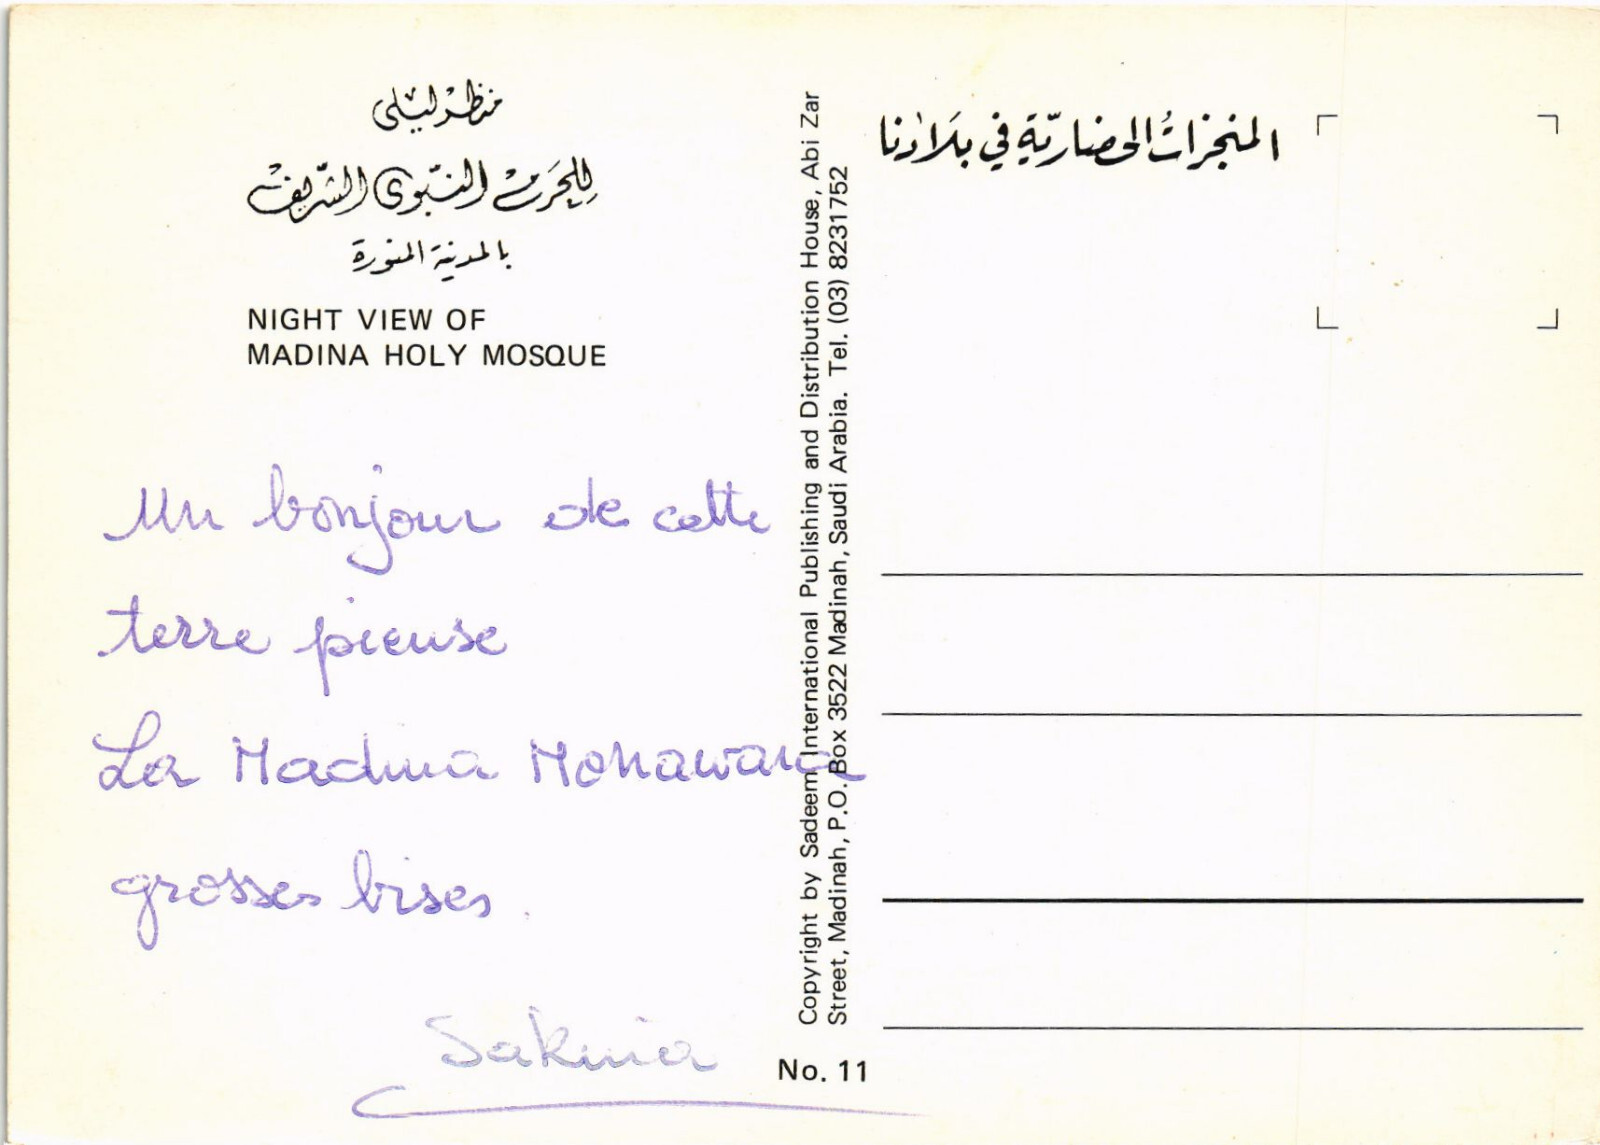 منظر ليلى
للحرم النبوى الشريف
بالمدينة المنورة
NIGHT VIEW OF
MADINA HOLY MOSQUE
Un bonjour de cette
terre pieuse
La Madina Monawara
grosses bises.
Sakina
Copyright by Sadeem International Publishing and Distribution House, Abi Zar
Street, Madinah, P.O. Box 3522 Madinah, Saudi Arabia. Tel. (03) 8231752
No. 11
المنجزات الحضارية في بلادنا